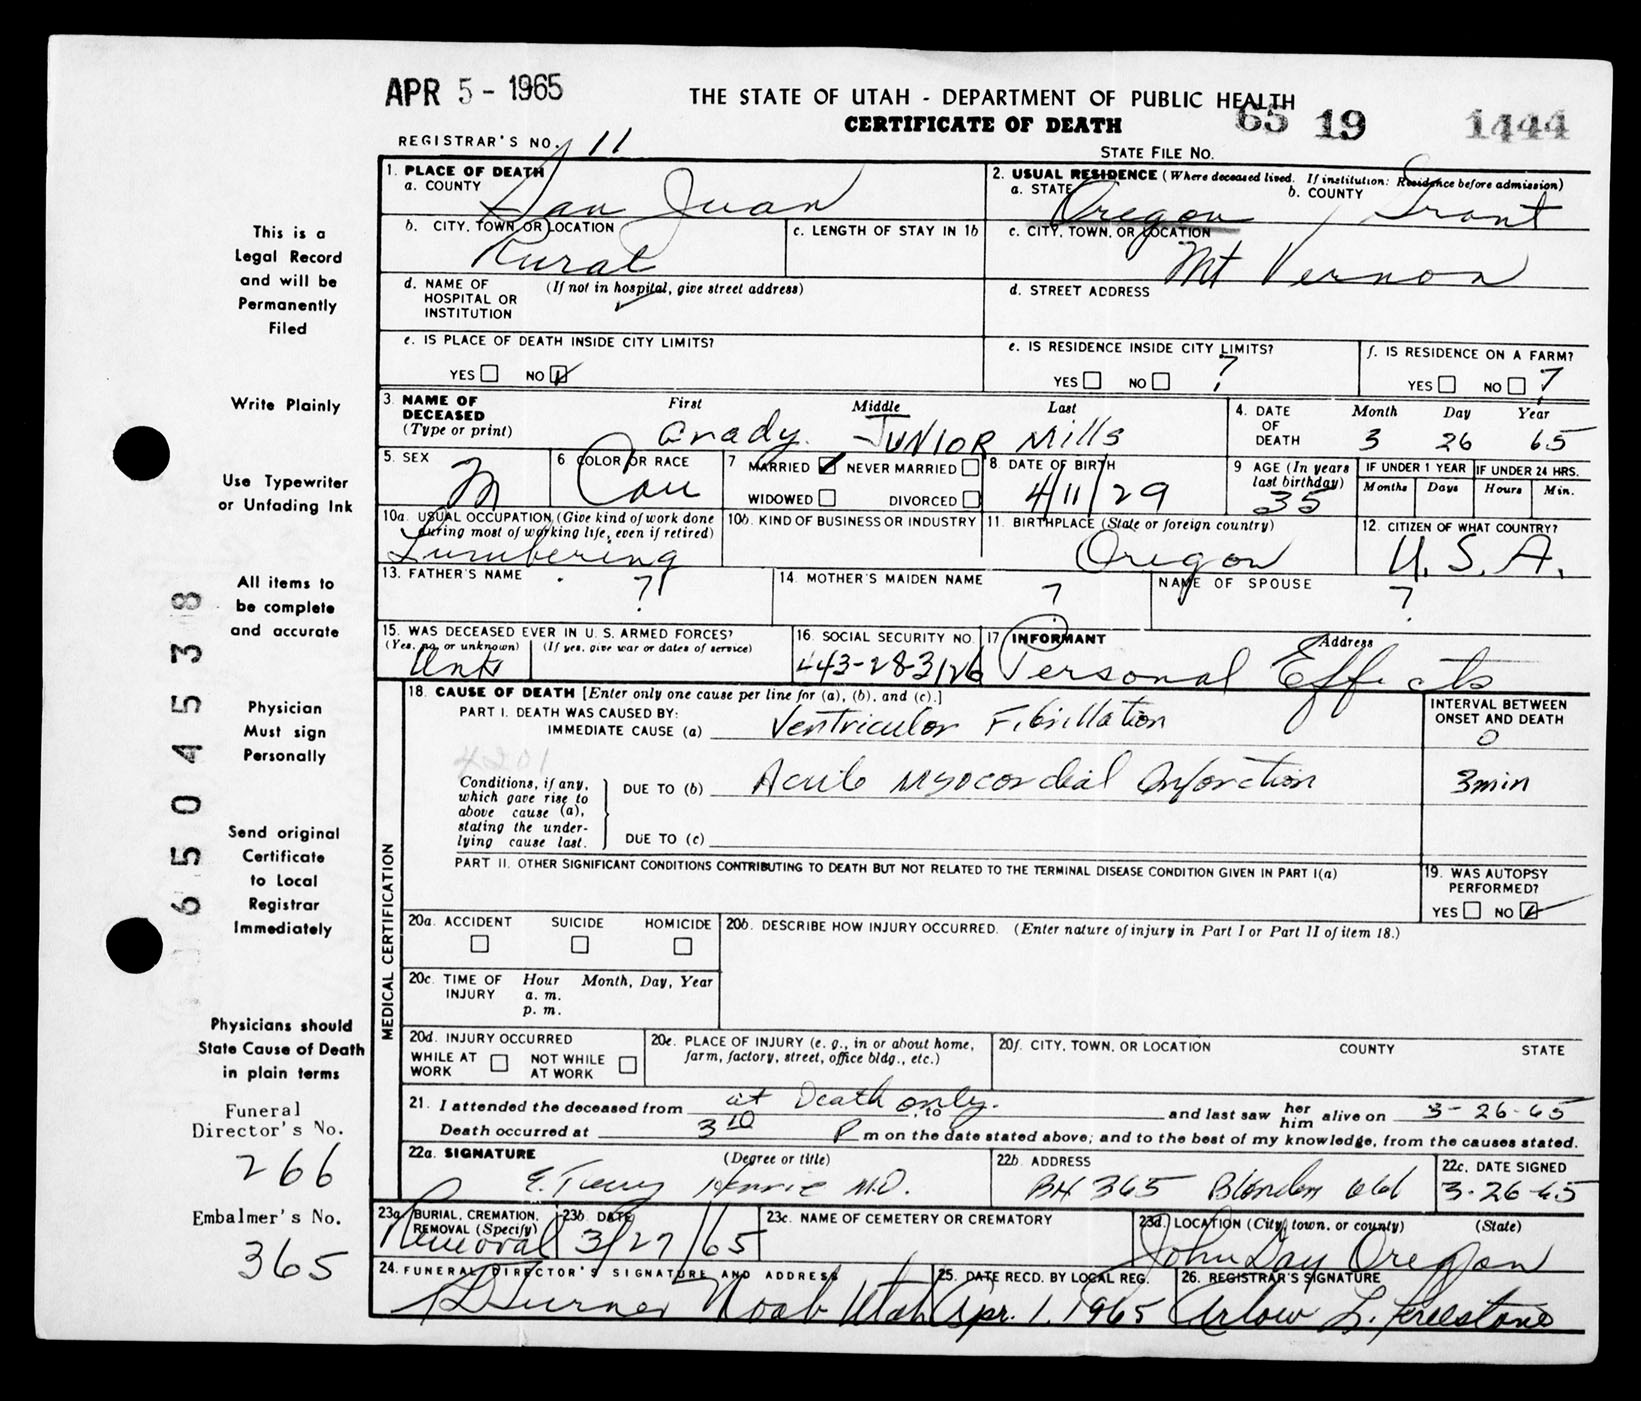 APR 5 - 1965
THE STATE OF UTAH - DEPARTMENT OF PUBLIC HEALTH
CERTIFICATE OF DEATH
65 19 1444
REGISTRAR'S NO. 11
STATE FILE NO.
1. PLACE OF DEATH
a. COUNTY San Juan
2. USUAL RESIDENCE (Where deceased lived. If institution: Residence before admission)
a. STATE Oregon b. COUNTY Grant
b. CITY, TOWN, OR LOCATION Rural
c. LENGTH OF STAY IN 1b
c. CITY, TOWN, OR LOCATION Mt Vernon
d. NAME OF HOSPITAL OR INSTITUTION (If not in hospital, give street address)
d. STREET ADDRESS
e. IS PLACE OF DEATH INSIDE CITY LIMITS?
YES NO
e. IS RESIDENCE INSIDE CITY LIMITS?
YES NO ?
f. IS RESIDENCE ON A FARM?
YES NO ?
3. NAME OF DECEASED (Type or print)
First Middle Last
Grady JUNIOR Mills
4. DATE OF DEATH
Month Day Year
3 26 65
5. SEX M
6 COLOR OR RACE Cau
7 MARRIED NEVER MARRIED
WIDOWED DIVORCED
8. DATE OF BIRTH
4/11/29
9 AGE (In years last birthday)
35
IF UNDER 1 YEAR
Months Days
IF UNDER 24 HRS.
Hours Min.
10a. USUAL OCCUPATION (Give kind of work done during most of working life, even if retired)
Lumbering
10b. KIND OF BUSINESS OR INDUSTRY
11. BIRTHPLACE (State or foreign country)
Oregon
12. CITIZEN OF WHAT COUNTRY?
U.S.A.
13. FATHER'S NAME ?
14. MOTHER'S MAIDEN NAME ?
NAME OF SPOUSE ?
15. WAS DECEASED EVER IN U. S. ARMED FORCES?
(Yes, no, or unknown) (If yes, give war or dates of service)
16. SOCIAL SECURITY NO.
443-28-3126
17 INFORMANT Address
Personal Effects
MEDICAL CERTIFICATION
18. CAUSE OF DEATH [Enter only one cause per line for (a), (b), and (c).]
PART I. DEATH WAS CAUSED BY:
IMMEDIATE CAUSE (a) Ventricular Fibrillation
INTERVAL BETWEEN ONSET AND DEATH
0
4201
Conditions, if any, which gave rise to above cause (a), stating the underlying cause last.
DUE TO (b) Acute Myocardial Infarction 3 min
DUE TO (c)
PART II. OTHER SIGNIFICANT CONDITIONS CONTRIBUTING TO DEATH BUT NOT RELATED TO THE TERMINAL DISEASE CONDITION GIVEN IN PART I(a)
19. WAS AUTOPSY PERFORMED?
YES NO
20a. ACCIDENT SUICIDE HOMICIDE
20b. DESCRIBE HOW INJURY OCCURRED. (Enter nature of injury in Part I or Part II of item 18.)
20c. TIME OF INJURY
Hour Month, Day, Year
a. m.
p. m.
20d. INJURY OCCURRED
WHILE AT WORK NOT WHILE AT WORK
20e. PLACE OF INJURY (e. g., in or about home, farm, factory, street, office bldg., etc.)
20f. CITY, TOWN, OR LOCATION COUNTY STATE
21. I attended the deceased from at Death only. , to and last saw her him alive on 3-26-65
Death occurred at 3 10 P m on the date stated above; and to the best of my knowledge, from the causes stated.
22a. SIGNATURE (Degree or title)
M.D.
22b. ADDRESS
365
22c. DATE SIGNED
3-26-65
23a. BURIAL, CREMATION, REMOVAL (Specify)
Removal
23b. DATE
3/27/65
23c. NAME OF CEMETERY OR CREMATORY
23d. LOCATION (City, town, or county) (State)
John Day Oregon
24. FUNERAL DIRECTOR'S SIGNATURE AND ADDRESS
Turner Moab Utah
25. DATE RECD. BY LOCAL REG.
Apr. 1, 1965
26. REGISTRAR'S SIGNATURE
L. Freestone
This is a
Legal Record
and will be
Permanently
Filed
Write Plainly
Use Typewriter
or Unfading Ink
All items to
be complete
and accurate
Physician
Must sign
Personally
Send original
Certificate
to Local
Registrar
Immediately
Physicians should
State Cause of Death
in plain terms
Funeral
Director's No.
266
Embalmer's No.
365
6504538